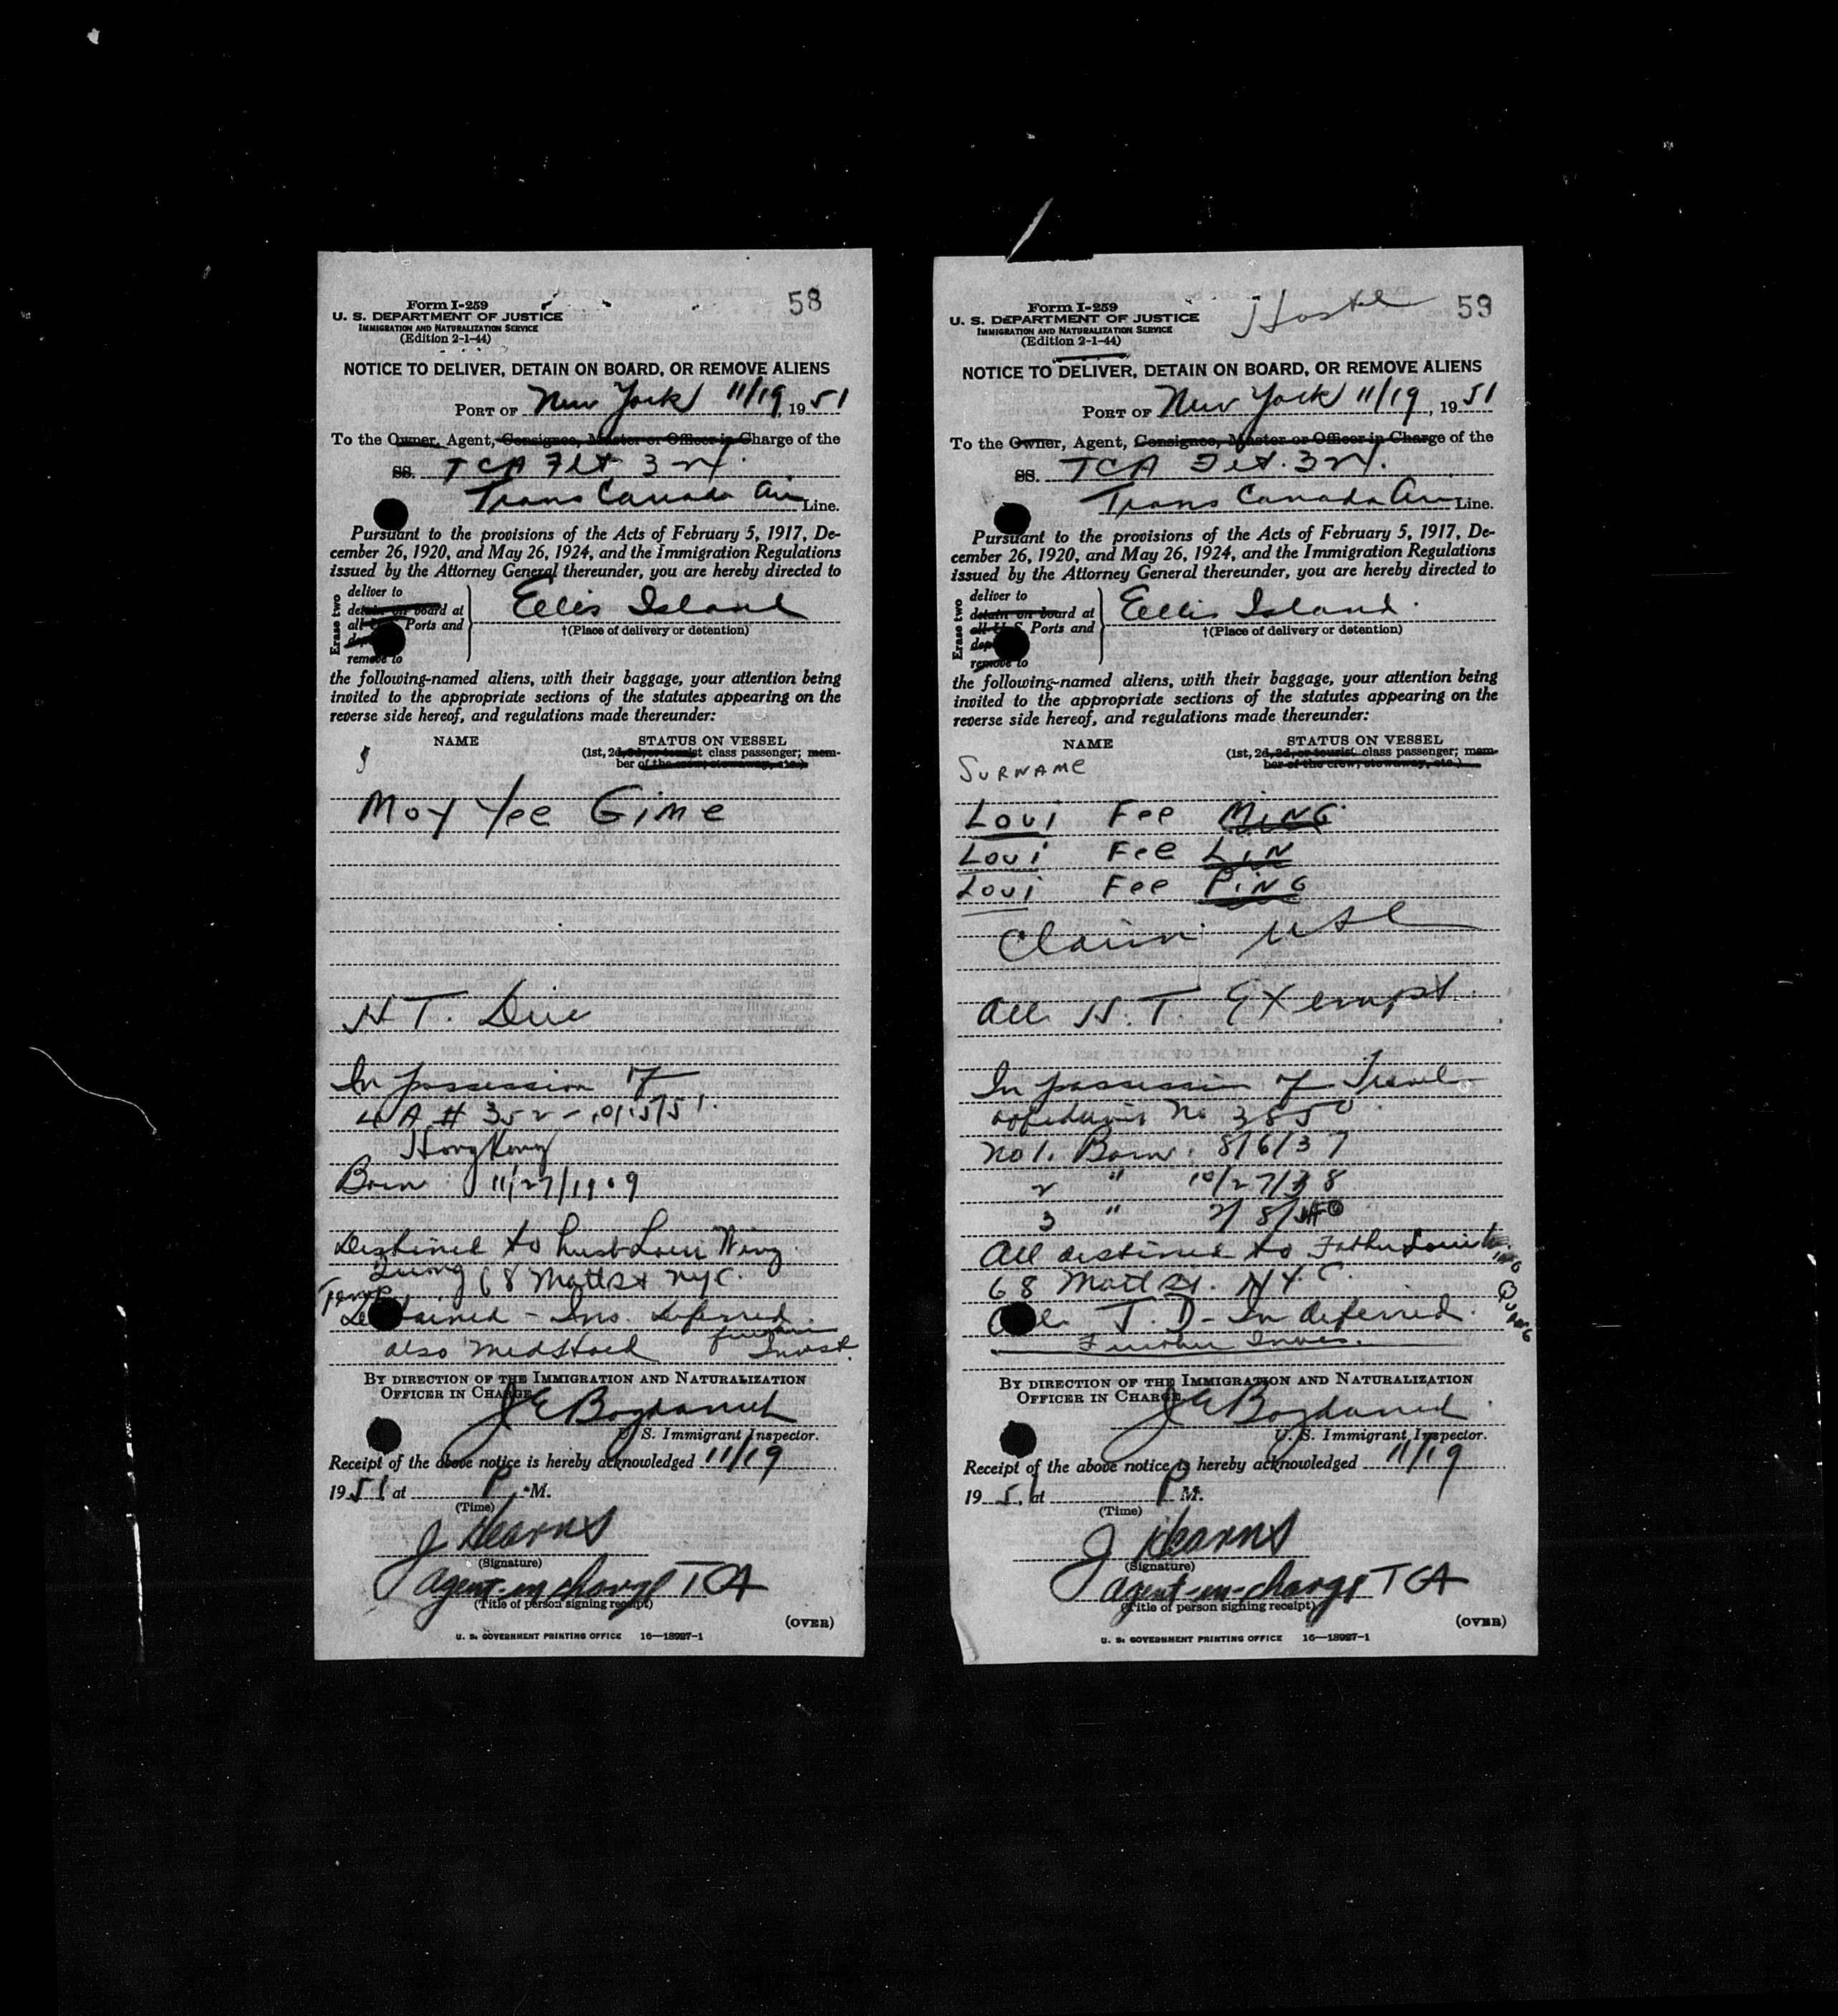 58
Form I-259
U. S. DEPARTMENT OF JUSTICE
IMMIGRATION AND NATURALIZATION SERVICE
(Edition 2-1-44)
NOTICE TO DELIVER, DETAIN ON BOARD, OR REMOVE ALIENS
PORT OF New York 11/19, 1951
To the Owner, Agent, Consignee, Master or Officer in Charge of the
SS. TCA Flt 324.
Trans Canada Air Line.
Pursuant to the provisions of the Acts of February 5, 1917, De-
cember 26, 1920, and May 26, 1924, and the Immigration Regulations
issued by the Attorney General thereunder, you are hereby directed to
Erase two
deliver to
detain on board at
all Ports and
remove to
Ellis Island
†(Place of delivery or detention)
the following-named aliens, with their baggage, your attention being
invited to the appropriate sections of the statutes appearing on the
reverse side hereof, and regulations made thereunder:
NAME STATUS ON VESSEL
(1st, 2d, 3d, or tourist class passenger; mem-
ber of the crew; stowaway, etc.)
Moy Yee Gime
H T. Due
In possession of
4 A # 352 - 10/15/51.
Hong Kong
Born 11/27/1909
Destined to husb Loui Wing
Quong 68 Mott St NYC.
Temp
Detained - Ins. Deferred.
further
also Med Hold Invst.
BY DIRECTION OF THE IMMIGRATION AND NATURALIZATION
OFFICER IN CHARGE
J E Bogdanich
U. S. Immigrant Inspector.
Receipt of the above notice is hereby acknowledged 11/19
1951 at P. M.
(Time)
J Hearns
(Signature)
agent-in-charge TCA
(Title of person signing receipt)
(OVER)
U. S. GOVERNMENT PRINTING OFFICE 16—18927-1
59
Form I-259
U. S. DEPARTMENT OF JUSTICE
IMMIGRATION AND NATURALIZATION SERVICE
(Edition 2-1-44)
NOTICE TO DELIVER, DETAIN ON BOARD, OR REMOVE ALIENS
PORT OF New York 11/19, 1951
To the Owner, Agent, Consignee, Master or Officer in Charge of the
SS. TCA Flt. 324.
Trans Canada Air Line.
Pursuant to the provisions of the Acts of February 5, 1917, De-
cember 26, 1920, and May 26, 1924, and the Immigration Regulations
issued by the Attorney General thereunder, you are hereby directed to
Erase two
deliver to
detain on board at
all U S Ports and
remove to
Ellis Island.
†(Place of delivery or detention)
the following-named aliens, with their baggage, your attention being
invited to the appropriate sections of the statutes appearing on the
reverse side hereof, and regulations made thereunder:
NAME STATUS ON VESSEL
(1st, 2d, 3d, or tourist class passenger; mem-
ber of the crew; stowaway, etc.)
SURNAME
Loui Fee MING
Loui Fee LIN
Loui Fee PING
Claim USC
All H. T. Exempt.
In possession of Travel
affidavit No 3850
No 1. Born. 8/6/37
2 " 10/27/38
3 " 2/8/40
All destined to Father Loui Wing
Quong
68 Mott St. N.Y.C.
All T. D - In deferred.
Further Inves.
BY DIRECTION OF THE IMMIGRATION AND NATURALIZATION
OFFICER IN CHARGE
J E Bogdanich
U. S. Immigrant Inspector.
Receipt of the above notice is hereby acknowledged 11/19
1951 at P M.
(Time)
J Hearns
(Signature)
agent-in-charge TCA
(Title of person signing receipt)
(OVER)
U. S. GOVERNMENT PRINTING OFFICE 16—18927-1